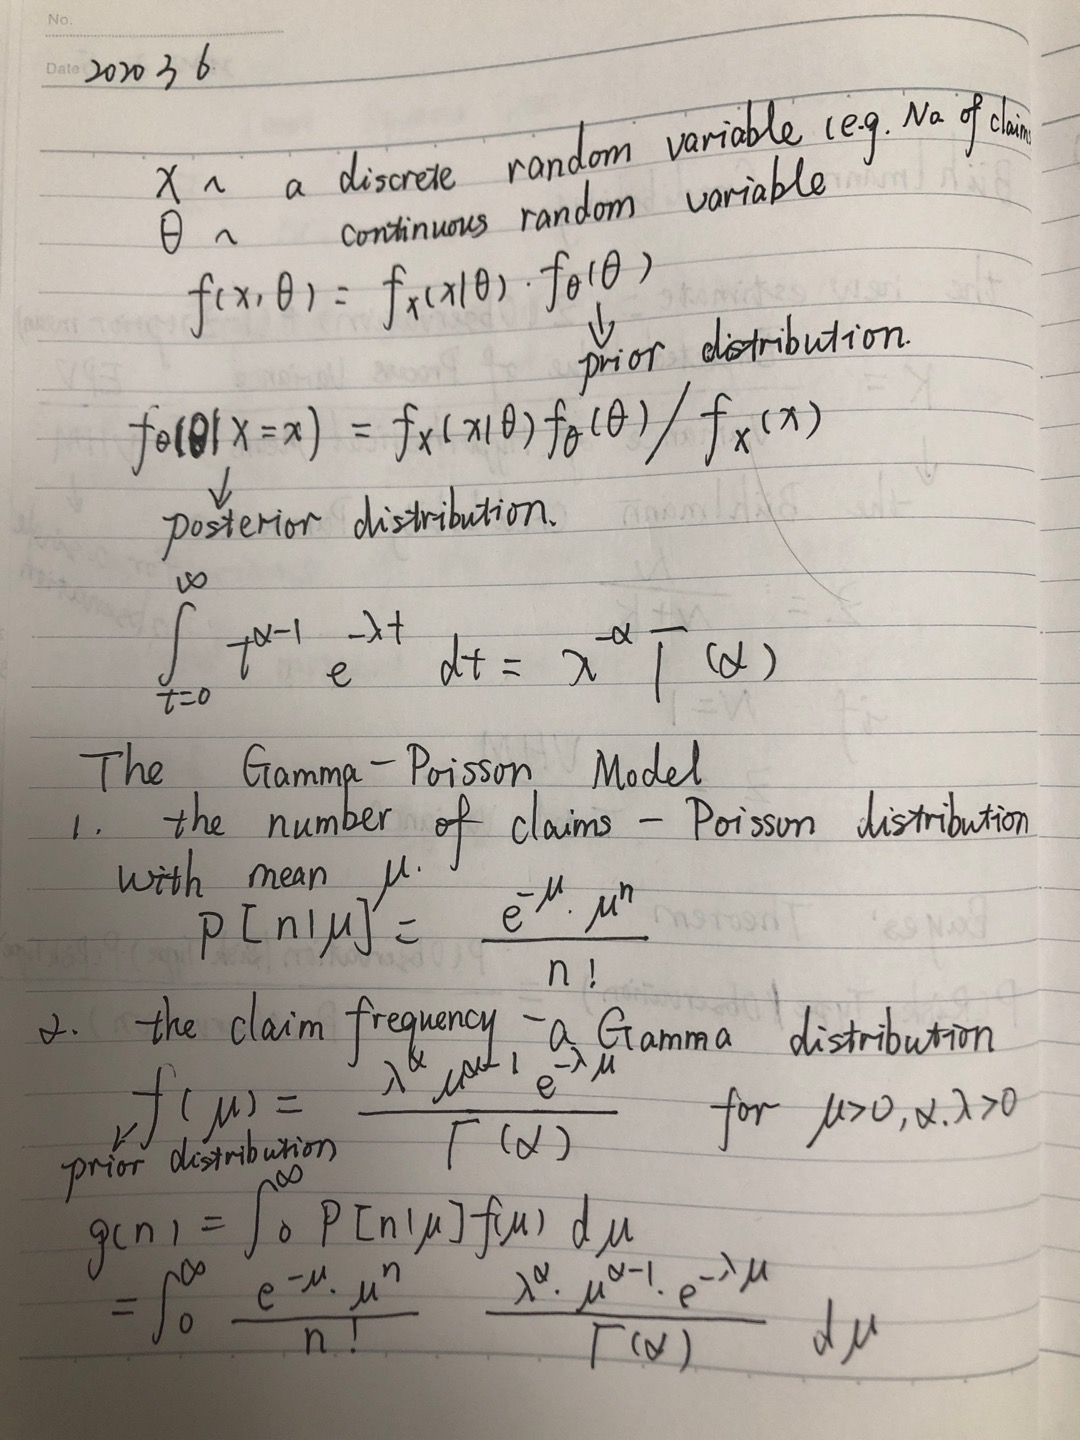 No.
Date 2020 3 6
X ~ a discrete random variable (e.g. No of claims
θ ~ continuous random variable
f(x, θ) = fₓ(x|θ) · f_θ(θ)
↓
prior distribution.
f_θ(θ|X=x) = fₓ(x|θ) f_θ(θ) / fₓ(x)
↓
posterior distribution.
∫_{t=0}^{∞} t^{α-1} e^{-λt} dt = λ^{-α} Γ(α)
The Gamma-Poisson Model
1. the number of claims - Poisson distribution
with mean μ.
P[n|μ] = \frac{e^{-μ} · μ^n}{n!}
2. the claim frequency - a Gamma distribution
f(μ) = \frac{λ^α μ^{α-1} e^{-λμ}}{Γ(α)} for μ>0, α.λ>0
↙
prior distribution
g(n) = ∫_0^∞ P[n|μ] f(μ) dμ
= ∫_0^∞ \frac{e^{-μ} · μ^n}{n!} \frac{λ^α · μ^{α-1} · e^{-λμ}}{Γ(α)} dμ